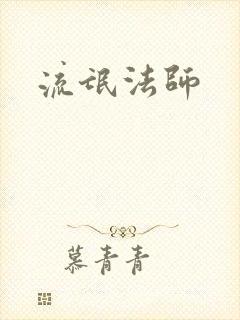 流氓法师
慕青青